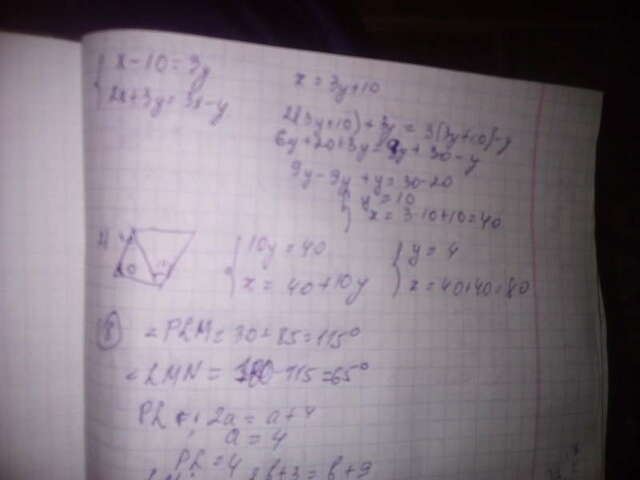 x - 10 = 3y
2x + 3y = 3x - y
x = 3y + 10
2(3y + 10) + 3y = 3(3y + 10) - y
6y + 20 + 3y = 9y + 30 - y
9y - 9y + y = 30 - 20
y = 10
x = 3·10 + 10 = 40
10y = 40
x = 40 + 10y
y = 4
x = 40 + 40 = 80
8
∠PLM = 30 + 85 = 115°
∠LMN = 180 - 115 = 65°
PL 2a = a + 4
a = 4
PL = 4
b + 3 = b + 9